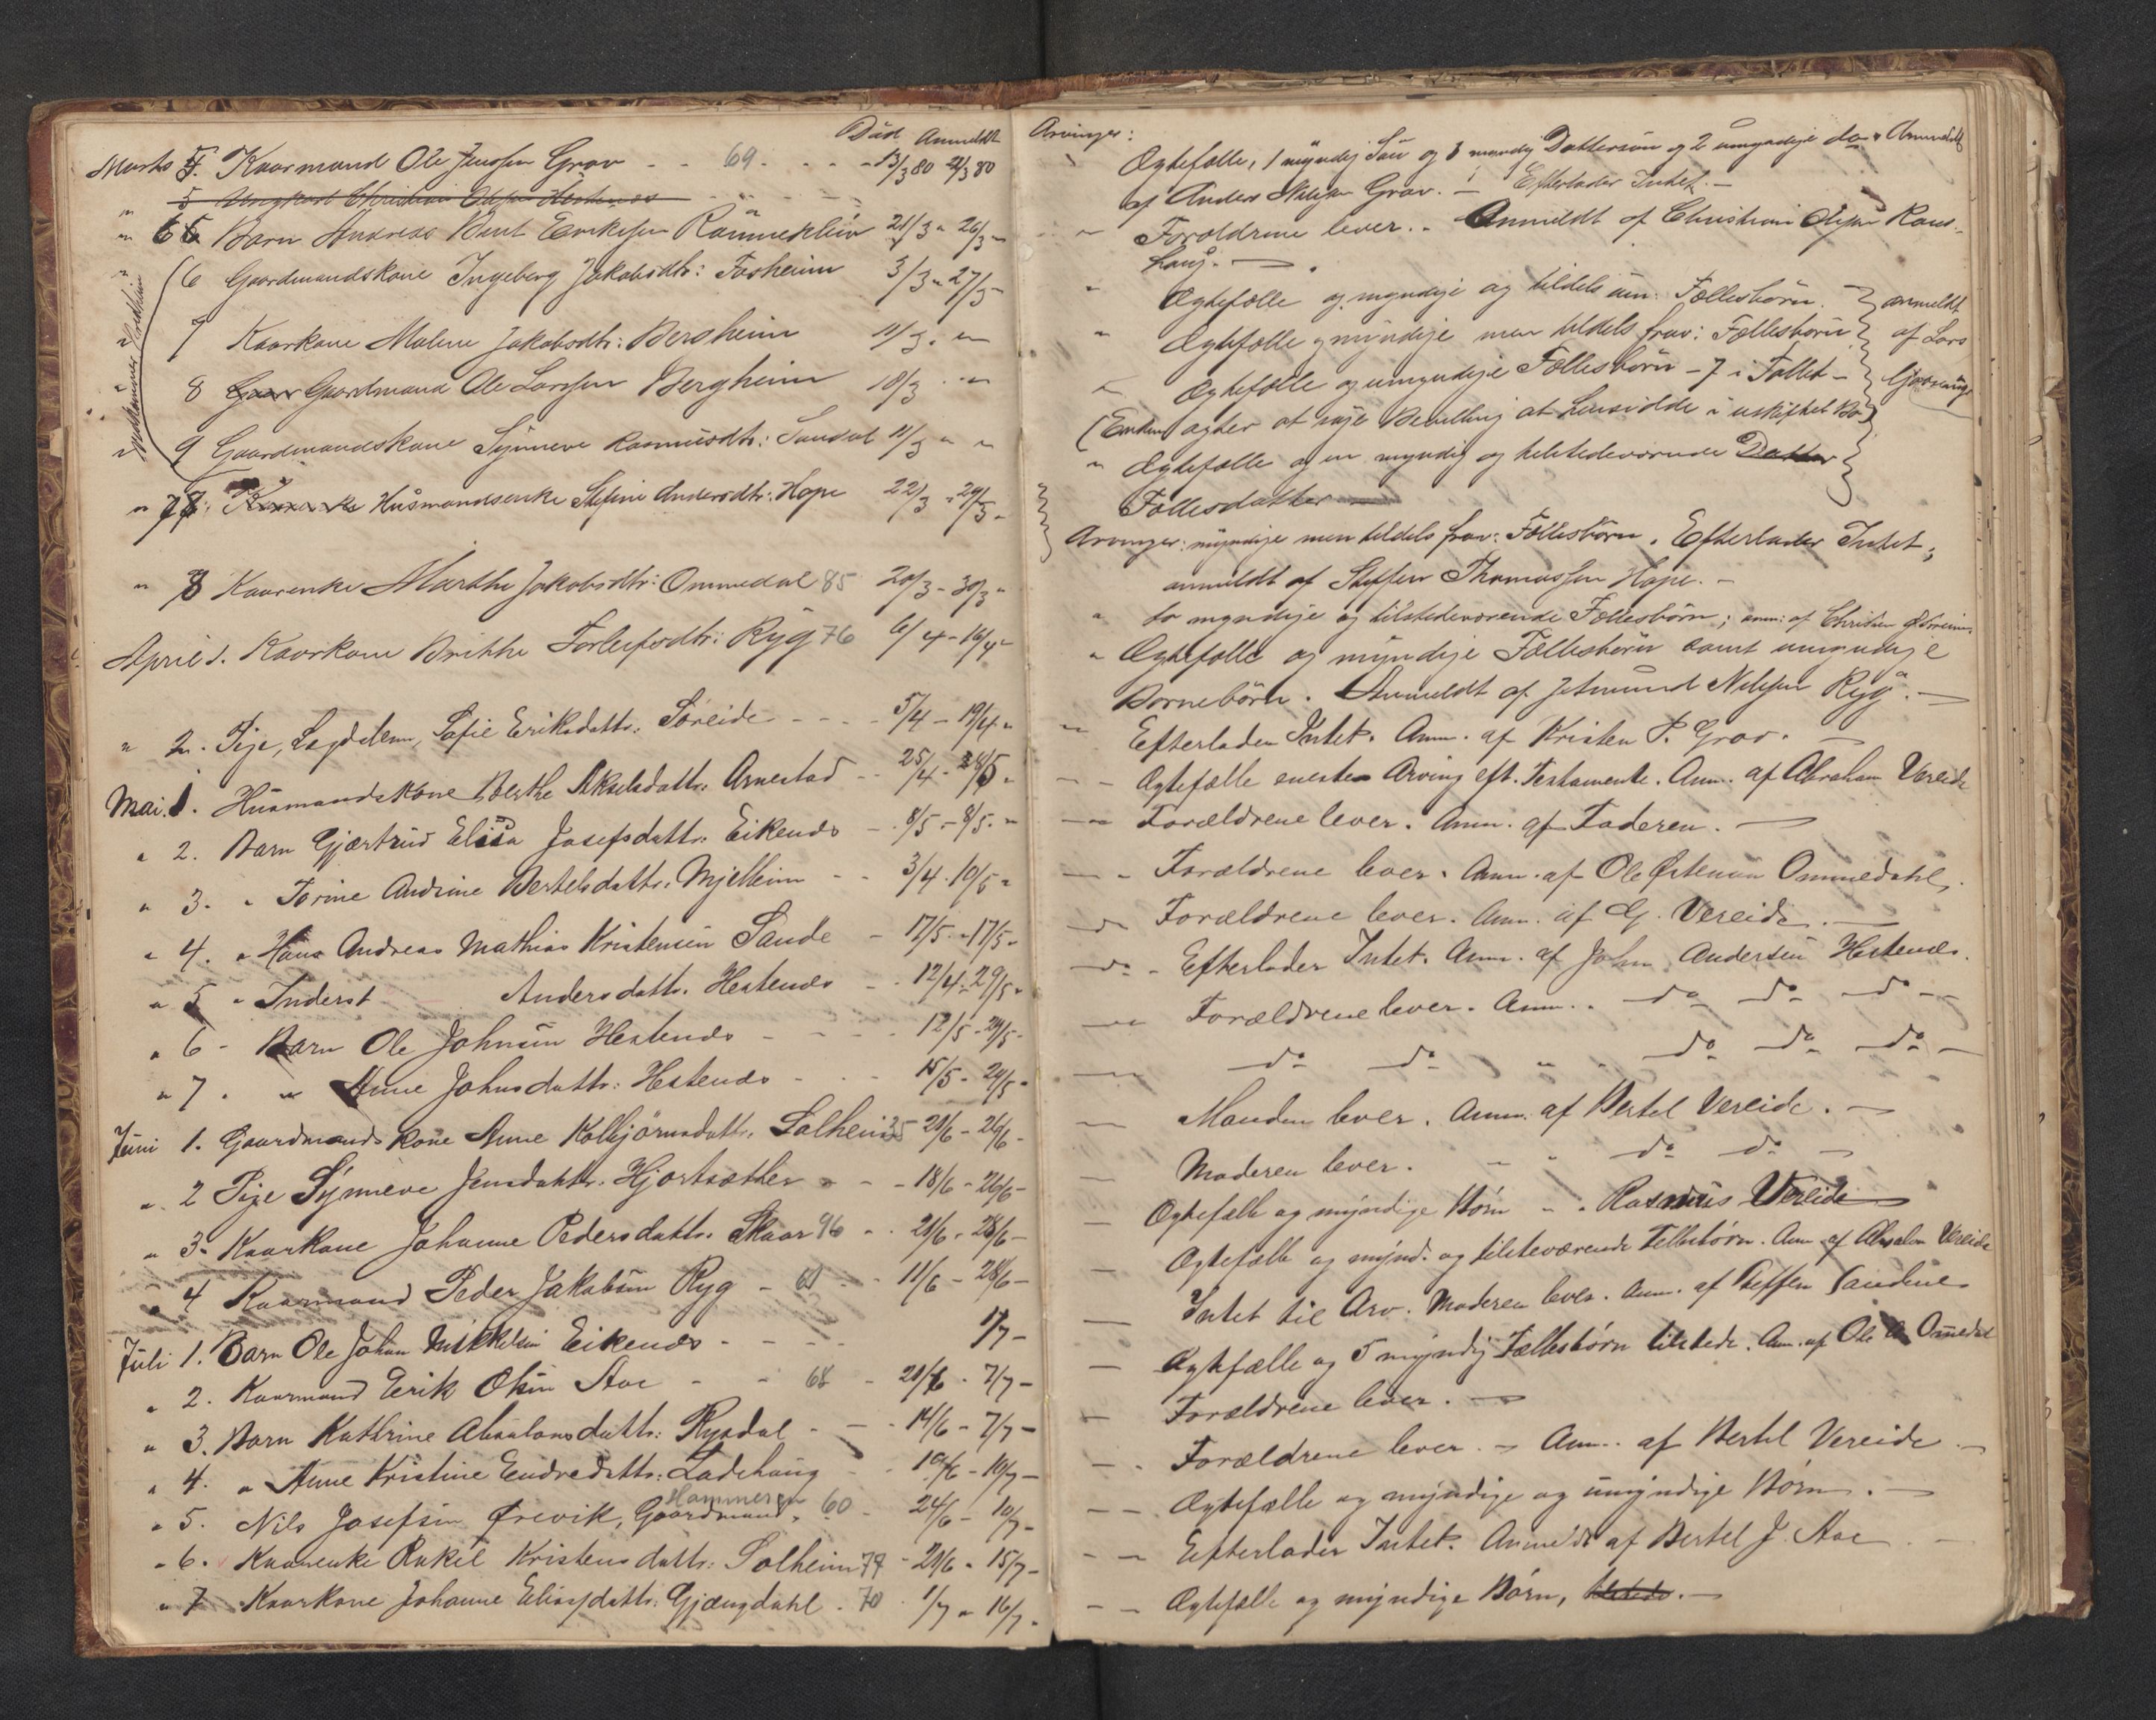 Död. Anmeldt
Marts 5. Kaarmand Ole Jensen Grav - - 69 - - - 13/3 80 21/3 80
" 5
" 6 Barn Andreas Bent Eriksen 21/3 " 26/3 "
Indkommer Bredheim
6 Gaardmandskone Ingeborg Jakobsdtr: Fosheim 3/3 " 27/3 "
7 Kaarkone Malene Jakobsdtr: Bergheim 11/3 " "
8 Gaardmand Ole Larssen Bergheim 18/3 " "
9 Gaardmandskone Synneve Rasmusdtr: Sandal 11/3 " "
" 7. Husmandsenke Stefine Andersdtr: Hope 22/3 - 29/3 "
" 8 Kaarenke Marthe Jakobsdtr: Ommedal 85 20/3 - 30/3 "
April 1. Kaarkone Brithe Torleifsdtr: Ryg 76 6/4 - 16/4 "
" 2. Pige, Lægdslem, Sofie Eriksdattr: Søreide - - - 5/4 - 19/4 "
Mai. 1. Husmandskone Berthe Akselsdattr: Arnestad - - 25/4 - 28/5 "
" 2. Barn Gjærtrud Elisa Josefsdattr. Eikenæs - 8/5 - 8/5. "
" 3. " Torine Andrine Bertelsdattr. Mjellem - - 3/4 - 10/5 "
" 4. " Hans Andreas Mathias Kristensen Sande - 17/5 - 17/5 "
" 5 " Inderst Andersdattr. Hestenæs - - 12/4 - 29/5 "
" 6 - Barn Ole Johnsen Hestenæs - - - 12/5 - 29/5 "
" 7. " Anne Johnsdattr: Hestenæs - - - 15/5 - 29/5 "
Juni 1. Gaardmandskone Anne Kolbjørnsdattr. Solheim 35 21/6 - 26/6 -
" 2 Pige Synneve Jensdattr. Hjortsæther - - - 18/6 - 26/6 -
" 3. Kaarkone Johanne Pedersdattr. Skaar 96 - - 21/6 - 28/6 -
" 4 Kaarmand Peder Jakobsen Ryg - 61 - - 11/6 - 28/6 -
Juli 1. Barn Ole Johan Mikkelsen Eikenæs - - - - 1/7 -
" 2. Kaarmand Erik Olsen Aae - - 68 - 21/6 - 7/7 -
" 3. Barn Kathrine Absalonsdattr: Rysdal - - - 14/6 - 7/7 -
" 4. " Anne Kristine Endredattr: Ladehaug - - 19/6 - 10/7 -
Hammeren
" 5. Nils Josefsen Ørevik, Gaardmand, 60 - 24/6 - 10/7 -
" 6. Kaarenke Rakel Kristensdattr: Solheim 77 - 29/6 - 15/7 -
" 7 Kaarkone Johanne Eliasdattr: Gjængdahl. 70 1/7 " 16/7 -
Arvinger:
Ægtefælle, 1 myndig Søn og 3 myndig Dattersøn og 2 umyndige do. Anmeldt
af Anders Nilssen Grav. - Efterlader Intet. -
" Forældrene lever. - Anmeldt af Christian Olsen
haug. -
" Ægtefælle og myndige og tildels um: Fællesbørn. anmeldt
" Ægtefælle myndige men tildels frav: Fællesbørn af Lars
" Ægtefælle og umyndige Fællesbørn - 7 i Tallet -
(Enken agter at søge Bevilling at hensidde i uskiftet Bo)
" Ægtefælle og en myndig og tilstedeværende Datter
Fællesdatter
Arvinger: myndige men tildels frav: Fællesbørn. Efterlader Intet;
anmeldt af Steffen Thomassen Hope. -
" to myndige og tilstedeværende Fællesbørn; anm: af Christen
" Ægtefælle og myndige Fællesbørn samt umyndige
Børnebørn. Anmeldt af Jetmund Nilssen Ryg. -
" Efterlader Intet. Anm. af Kristen P. Grav. -
- - Ægtefælle eneste Arving eft. Testamente. Anm. af Abraham Vereide
- " Forældrene lever. Anm. af Faderen. -
- " Forældrene lever. Anm. af Ole Østensen Ommedahl.
- " Forældrene lever. Anm. af G. Vereide. -
- " - Efterlader Intet. Anm. af John Andersen Hestenæs.
- " Forældrene lever. Anm. - do do do - -
- do do " " do do do -
- Manden lever. Anm. af Bertel Vereide. -
- Moderen lever. - " do do -
- Ægtefælle og myndige Børn " " Rasmus Vereide
- Ægtefælle og mynd. og tilsteværende Fellesbørn. Anm. af Absalon Vereide
- Intet til Arv. Moderen lever. Anm. af Steffen Sandene
- Ægtefælle og 5 myndig Fællesbørn tilstede. Anm. af Ole Ommedal
- Forældrene lever. -
- - Forældrene lever. - Anm. af Bertel Vereide -
- - Ægtefælle og myndige og umyndige Børn. -
- - Efterlader Intet. Anmeldt af Bertel J. Aae -
- - Ægtefælle og myndige Børn, tilstede. -